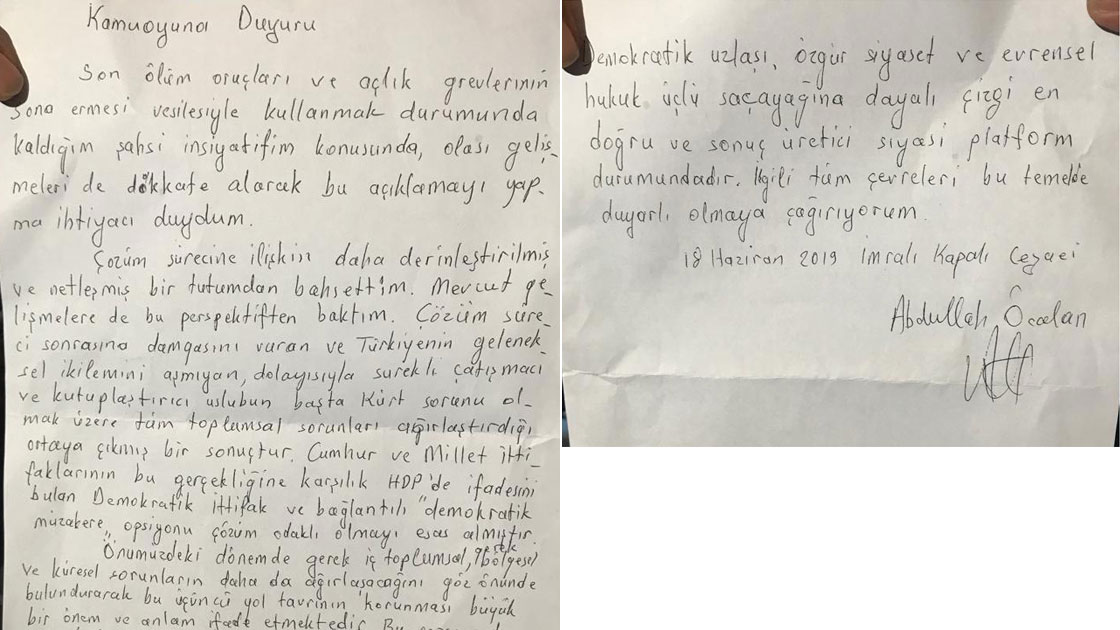 Kamuoyuna Duyuru
Son ölüm oruçları ve açlık grevlerinin
sona ermesi vesilesiyle kullanmak durumunda
kaldığım şahsi insiyatifim konusunda, olası geliş-
meleri de dikkate alarak bu açıklamayı yap-
ma ihtiyacı duydum.
Çözüm sürecine ilişkin daha derinleştirilmiş
ve netleşmiş bir tutumdan bahsettim. Mevcut ge-
lişmelere de bu perspektiften baktım. Çözüm süre-
ci sonrasına damgasını vuran ve Türkiyenin gelenek-
sel ikilemini aşmıyan, dolayısıyla sürekli çatışmacı
ve kutuplaştırıcı uslubun başta Kürt sorunu ol-
mak üzere tüm toplumsal sorunları ağırlaştırdığı
ortaya çıkmış bir sonuçtur. Cumhur ve Millet itti-
faklarının bu gerçekliğine karşılık HDP'de ifadesini
bulan Demokratik ittifak ve bağlantılı "demokratik
müzakere" opsiyonu çözüm odaklı olmayı esas almıştır.
Önümüzdeki dönemde gerek iç toplumsal, gerek bölgesel
ve küresel sorunların daha da ağırlaşacağını göz önünde
bulundurarak bu üçüncü yol tavrının korunması büyük
bir önem ve anlam ifade etmektedir. Bu
Demokratik uzlaşı, özgür siyaset ve evrensel
hukuk üçlü saçayağına dayalı çizgi en
doğru ve sonuç üretici siyasi platform
durumundadır. İlgili tüm çevreleri bu temelde
duyarlı olmaya çağırıyorum.
18 Haziran 2019 İmralı Kapalı Cezaevi
Abdullah Öcalan